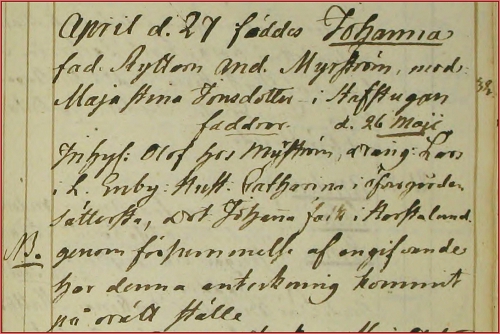 April d. 27 föddes Johanna
fad. Ryttarn And. Myrström, mod.
Maja Stina Jonsdotter i Kaffstugan
faddrar. d. 26 Maji
Inhys: Olof hos Myström, dräng: Lars
i L. Enby: Hust: Catharina i öfvergården
Sätterstа, Johanna i
NB. genom försummelse af angifvande
har denna anteckning kommit
på orätt ställe